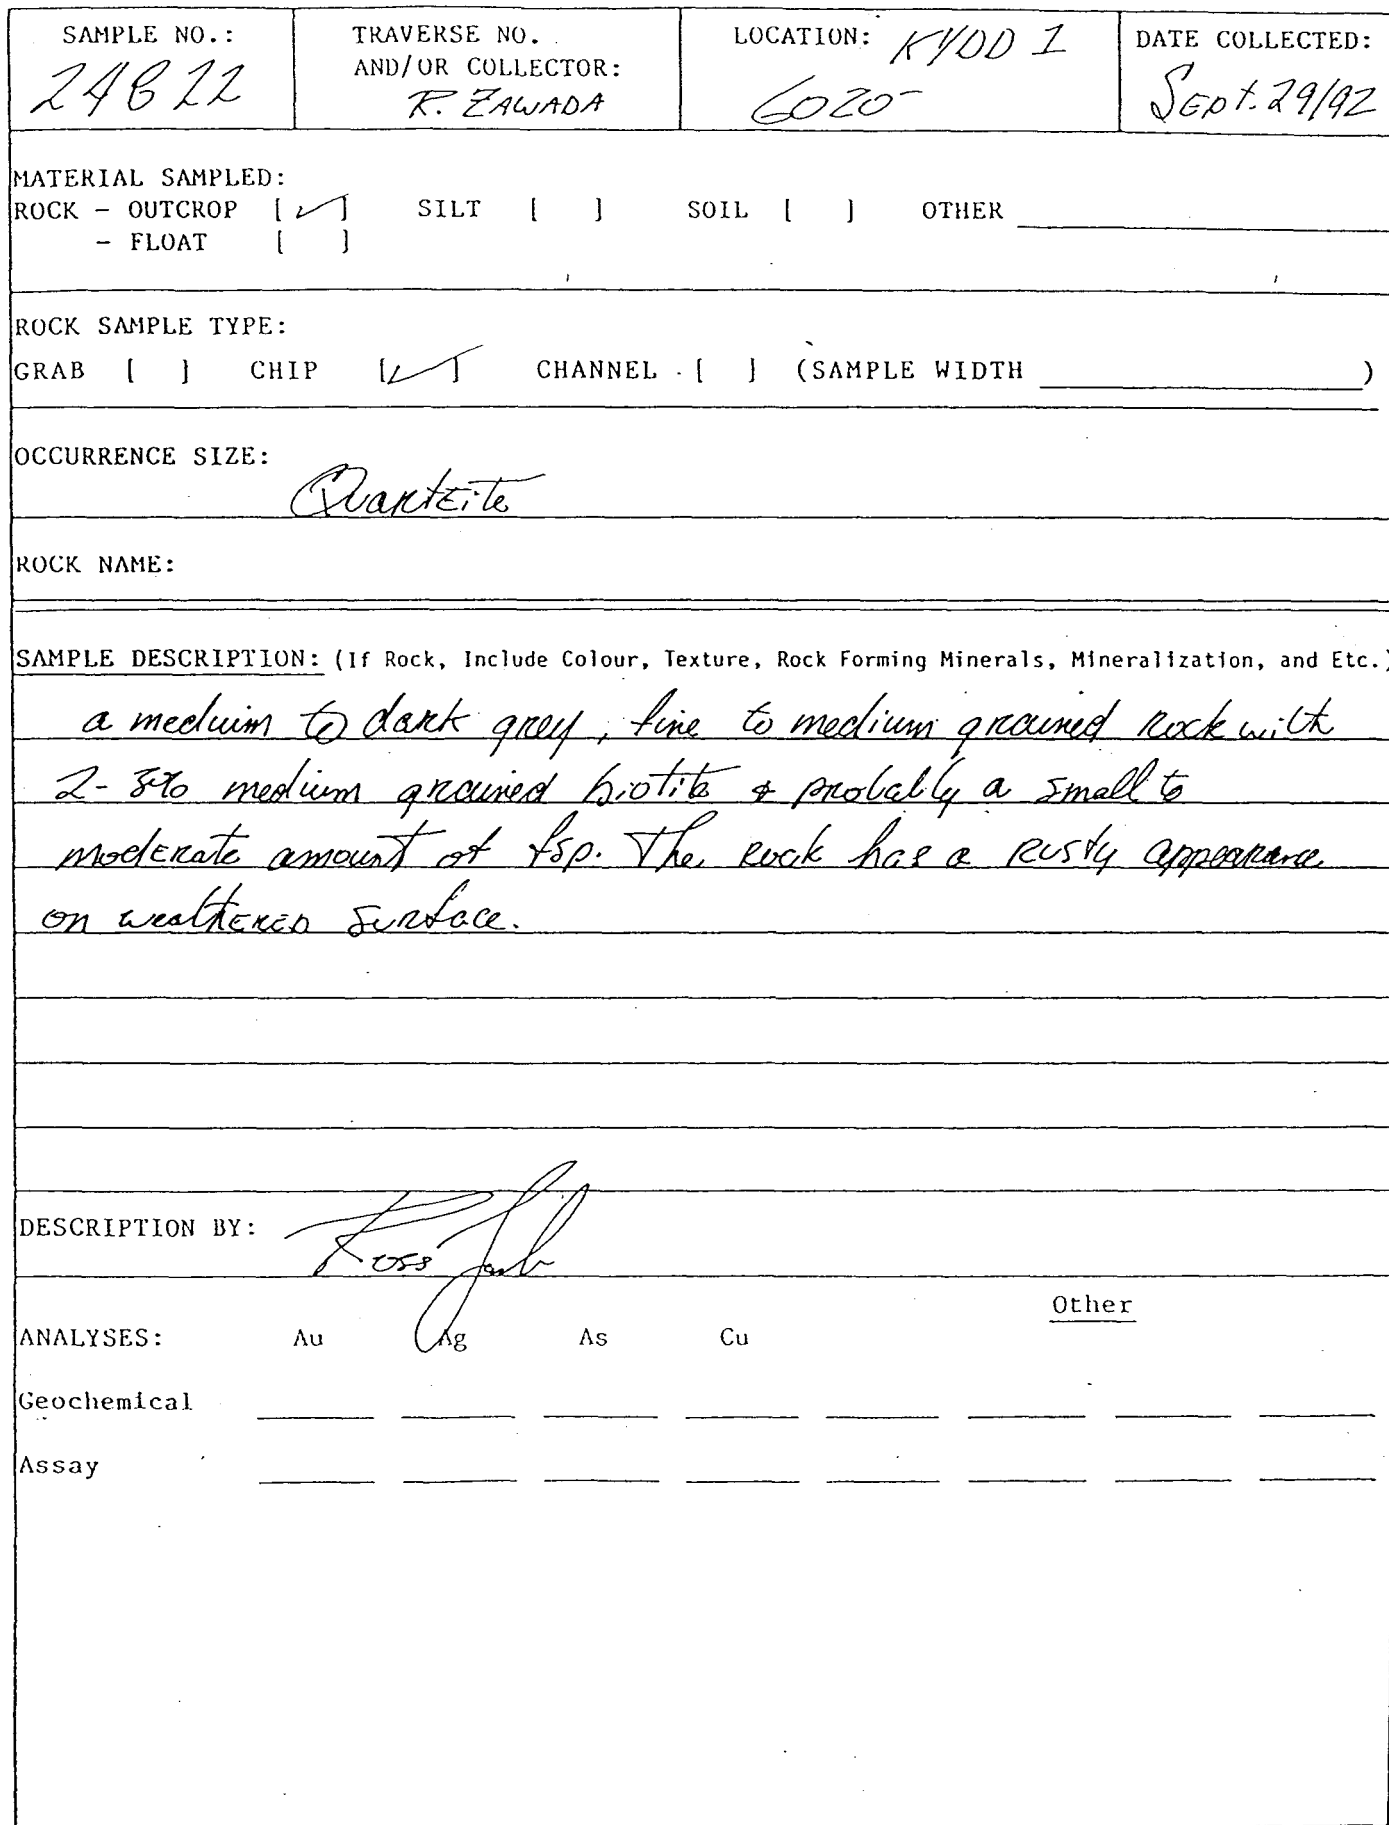 SAMPLE NO.:
24822
TRAVERSE NO.
AND/OR COLLECTOR:
R. ZAWADA
LOCATION: KYDD 1
6020
DATE COLLECTED:
Sept. 29/92
MATERIAL SAMPLED:
ROCK - OUTCROP [✓] SILT [ ] SOIL [ ] OTHER
- FLOAT [ ]
ROCK SAMPLE TYPE:
GRAB [ ] CHIP [✓] CHANNEL [ ] (SAMPLE WIDTH )
OCCURRENCE SIZE:
Quartzite
ROCK NAME:
SAMPLE DESCRIPTION: (If Rock, Include Colour, Texture, Rock Forming Minerals, Mineralization, and Etc.)
a meduim to dark grey, fine to medium grained rock with
2-3% medium grained biotite & probably a small to
moderate amount of fsp. The rock has a rusty appearance
on weathered surface.
DESCRIPTION BY: Ross
ANALYSES: Au Ag As Cu Other
Geochemical
Assay